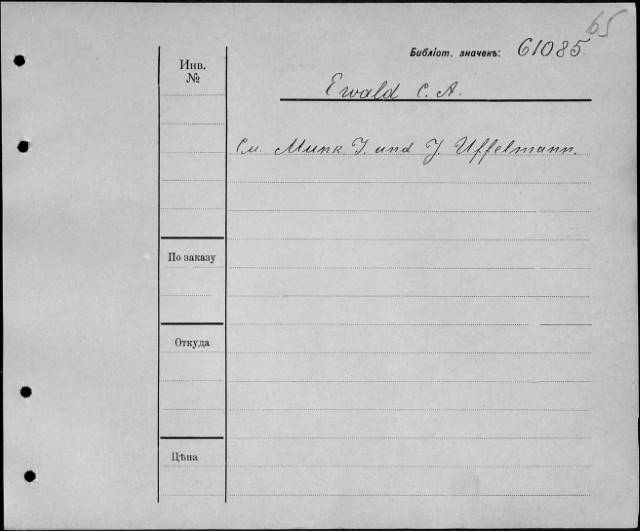 65
Библіот. значекъ: 61085.
Инв.
№
Ewald C. A.
См. Munk I. und J. Uffelmann.
По заказу
Откуда
Цѣна